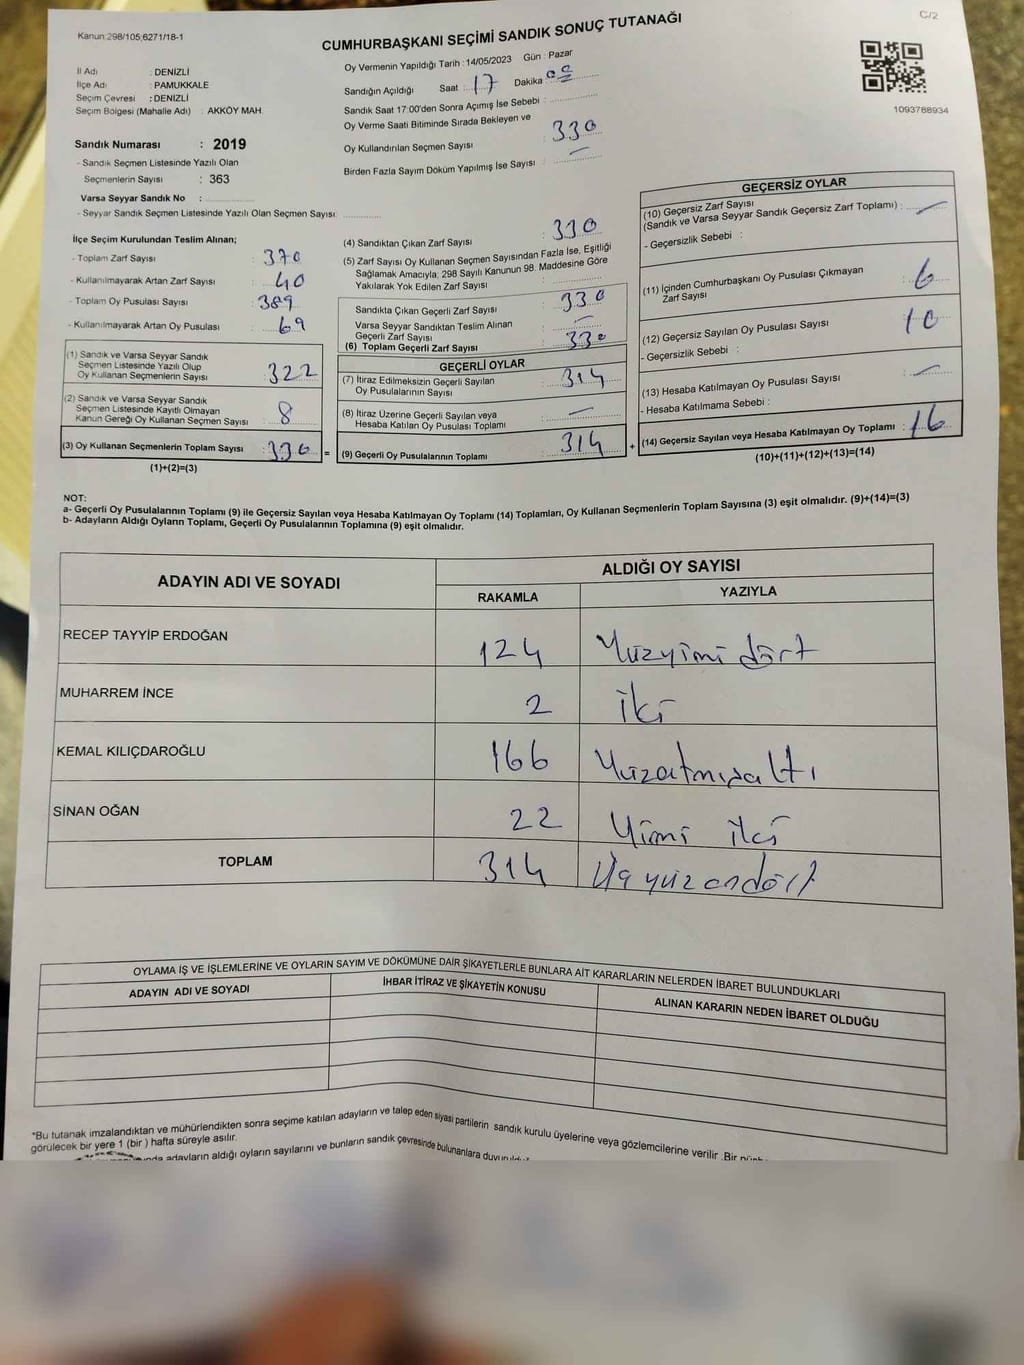 Kanun:298/105;6271/18-1
C/2
CUMHURBAŞKANI SEÇİMİ SANDIK SONUÇ TUTANAĞI
1093788934
İl Adı : DENİZLİ
İlçe Adı : PAMUKKALE
Seçim Çevresi : DENİZLİ
Seçim Bölgesi (Mahalle Adı) : AKKÖY MAH.
Sandık Numarası : 2019
- Sandık Seçmen Listesinde Yazılı Olan
Seçmenlerin Sayısı : 363
Varsa Seyyar Sandık No :
- Seyyar Sandık Seçmen Listesinde Yazılı Olan Seçmen Sayısı:
Oy Vermenin Yapıldığı Tarih : 14/05/2023 Gün : Pazar
Sandığın Açıldığı Saat : 17 Dakika : 00
Sandık Saat 17:00'den Sonra Açımış İse Sebebi :
Oy Verme Saati Bitiminde Sırada Bekleyen ve
Oy Kullandırılan Seçmen Sayısı : 330
Birden Fazla Sayım Döküm Yapılmış İse Sayısı : —
İlçe Seçim Kurulundan Teslim Alınan;
- Toplam Zarf Sayısı : 370
- Kullanılmayarak Artan Zarf Sayısı : 40
- Toplam Oy Pusulası Sayısı : 389
- Kullanılmayarak Artan Oy Pusulası : 69
(1) Sandık ve Varsa Seyyar Sandık
Seçmen Listesinde Yazılı Olup
Oy Kullanan Seçmenlerin Sayısı : 322
(2) Sandık ve Varsa Seyyar Sandık
Seçmen Listesinde Kayıtlı Olmayan
Kanun Gereği Oy Kullanan Seçmen Sayısı : 8
(3) Oy Kullanan Seçmenlerin Toplam Sayısı : 330
(1)+(2)=(3)
(4) Sandıktan Çıkan Zarf Sayısı : 330
(5) Zarf Sayısı Oy Kullanan Seçmen Sayısından Fazla İse, Eşitliği
Sağlamak Amacıyla; 298 Sayılı Kanunun 98. Maddesine Göre
Yakılarak Yok Edilen Zarf Sayısı :
Sandıkta Çıkan Geçerli Zarf Sayısı : 330
Varsa Seyyar Sandıktan Teslim Alınan
Geçerli Zarf Sayısı : —
(6) Toplam Geçerli Zarf Sayısı : 330
=
GEÇERLİ OYLAR
(7) İtiraz Edilmeksizin Geçerli Sayılan
Oy Pusulalarının Sayısı : 314
(8) İtiraz Üzerine Geçerli Sayılan veya
Hesaba Katılan Oy Pusulası Toplamı : —
(9) Geçerli Oy Pusulalarının Toplamı : 314
+
GEÇERSİZ OYLAR
(10) Geçersiz Zarf Sayısı
(Sandık ve Varsa Seyyar Sandık Geçersiz Zarf Toplamı) : —
- Geçersizlik Sebebi :
(11) İçinden Cumhurbaşkanı Oy Pusulası Çıkmayan
Zarf Sayısı : 6
(12) Geçersiz Sayılan Oy Pusulası Sayısı : 10
- Geçersizlik Sebebi :
(13) Hesaba Katılmayan Oy Pusulası Sayısı : —
- Hesaba Katılmama Sebebi :
(14) Geçersiz Sayılan veya Hesaba Katılmayan Oy Toplamı : 16
(10)+(11)+(12)+(13)=(14)
NOT:
a- Geçerli Oy Pusulalarının Toplamı (9) ile Geçersiz Sayılan veya Hesaba Katılmayan Oy Toplamı (14) Toplamları, Oy Kullanan Seçmenlerin Toplam Sayısına (3) eşit olmalıdır. (9)+(14)=(3)
b- Adayların Aldığı Oyların Toplamı, Geçerli Oy Pusulalarının Toplamına (9) eşit olmalıdır.
ADAYIN ADI VE SOYADI
ALDIĞI OY SAYISI
RAKAMLA YAZIYLA
RECEP TAYYİP ERDOĞAN 124 Yüzyimi dört
MUHARREM İNCE 2 iki
KEMAL KILIÇDAROĞLU 166 Yüzatmışaltı
SİNAN OĞAN 22 Yimi iki
TOPLAM 314 Üçyüzondört
OYLAMA İŞ VE İŞLEMLERİNE VE OYLARIN SAYIM VE DÖKÜMÜNE DAİR ŞİKAYETLERLE BUNLARA AİT KARARLARIN NELERDEN İBARET BULUNDUKLARI
ADAYIN ADI VE SOYADI İHBAR İTİRAZ VE ŞİKAYETİN KONUSU ALINAN KARARIN NEDEN İBARET OLDUĞU
*Bu tutanak imzalandıktan ve mühürlendikten sonra seçime katılan adayların ve talep eden siyasi partilerin sandık kurulu üyelerine veya gözlemcilerine verilir .Bir
görülecek bir yere 1 (bir ) hafta süreyle asılır.
adayların aldığı oyların sayılarını ve bunların sandık çevresinde bulunanlara